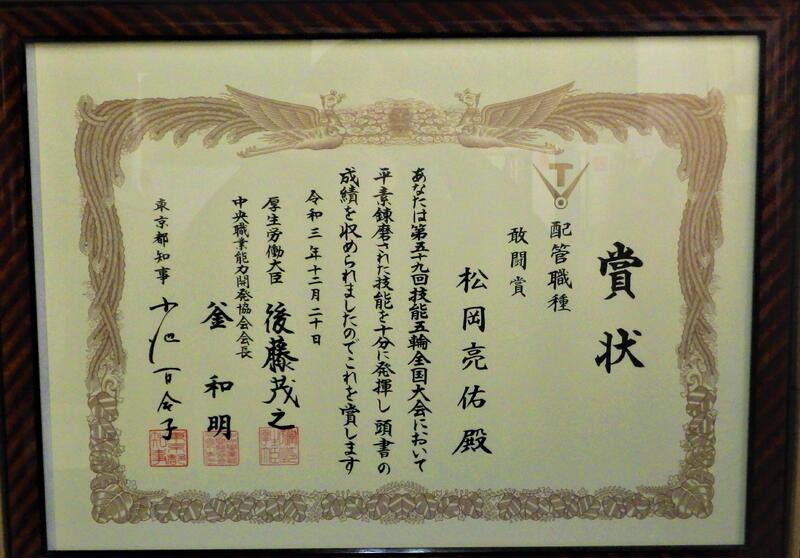 賞状
配管職種
敢闘賞
松岡亮佑殿
あなたは第五十九回技能五輪全国大会において
平素錬磨された技能を十分に発揮し頭書の
成績を収められましたのでこれを賞します
令和三年十二月二十日
厚生労働大臣 後藤茂之
中央職業能力開発協会会長 釜和明
東京都知事 小池百合子